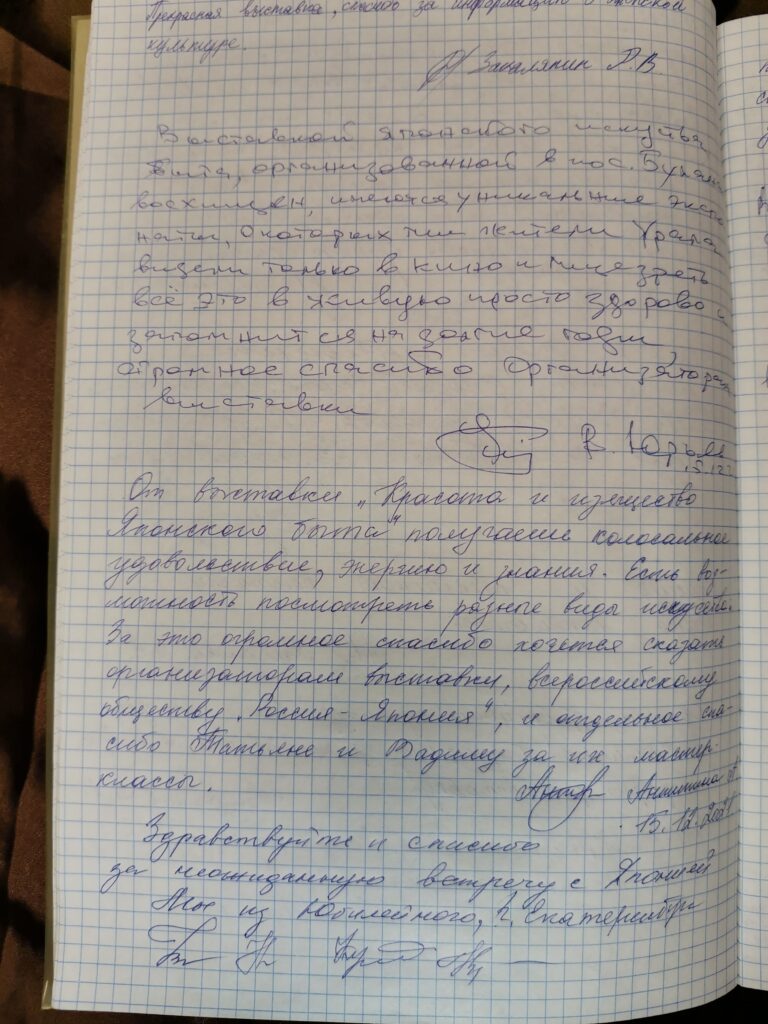 Прекрасная выставка, спасибо за информацию о японской
культуре.
Р.В.
Выставкой японского искуства
быта, организованной в пос.
восхищен, имеются уникальные экспо
наты, о которых мы жители Урала
видели только в кино и лицезреть
всё это в живую просто здорово и
запомнится на долгие годы,
огромное спасибо организаторам
выставки
В.
От выставки „Красота и изящество
Японского быта" получаешь колосальное
удовольствие, энергию и знания. Есть воз-
можность посмотреть разные виды искусства.
За это огромное спасибо хочется сказать
организаторам выставки, всероссийскому
обществу „Россия-Япония", и отдельное спа-
сибо Татьяне и Вадиму за их мастер-
классы.
15.12.2021
Здравствуйте и спасибо
за неожиданную встречу с Японией
Мы из Юбилейного, г. Екатеринбург